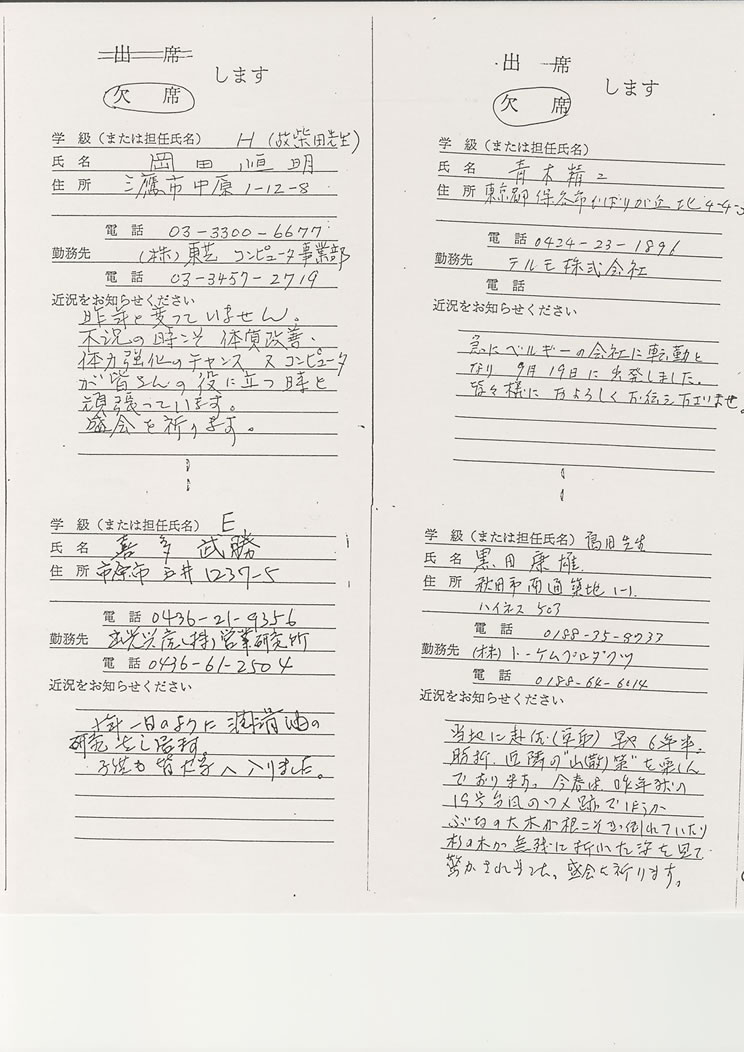 出 席
欠 席
します
学 級（または担任氏名） H (故柴田先生)
氏 名 岡田恒明
住 所 三鷹市中原1-12-8
電 話 03-3300-6677
勤務先 (株)東芝 コンピュータ事業部
電 話 03-3457-2719
近況をお知らせください
昨年と変っていません。
不況の時こそ 体質改善・
体力強化のチャンス 又コンピュータ
が皆さんの役に立つ時と
頑張っています。
盛会を祈ります。
学 級（または担任氏名） E
氏 名 喜多 武勝
住 所 市原市 五井 1237-5
電 話 0436-21-9356
勤務先 出光興産(株)営業研究所
電 話 0436-61-2504
近況をお知らせください
十年一日のように潤滑油の
研究をし居ます。
子供も皆大学へ入りました。
出 席
欠 席
します
学 級（または担任氏名）
氏 名 青木精二
住 所 東京都保谷市ひばりが丘 4-4-
電 話 0424-23-1896
勤務先 テルモ株式会社
電 話
近況をお知らせください
急にベルギーの会社に転勤と
なり 9月19日に出発しました。
皆々様に方よろしくお伝え下さいませ。
学 級（または担任氏名） 先生
氏 名 黒田康雄
住 所 秋田市南通築地 1-1
ハイネス 503
電 話 0188-35-8733
勤務先 (株)トーケムプロダクツ
電 話 0188-64-6014
近況をお知らせください
当地に赴任(単身) 早や6年半。
時折、近隣の"山(散)策"を楽しん
でおります。今春は、昨年秋の
19号台風のツメ跡でほうか
ぶなの大木が根こそぎ倒れていたり
杉の木が無残に折れた姿を見て
驚かされました。盛会を祈ります。